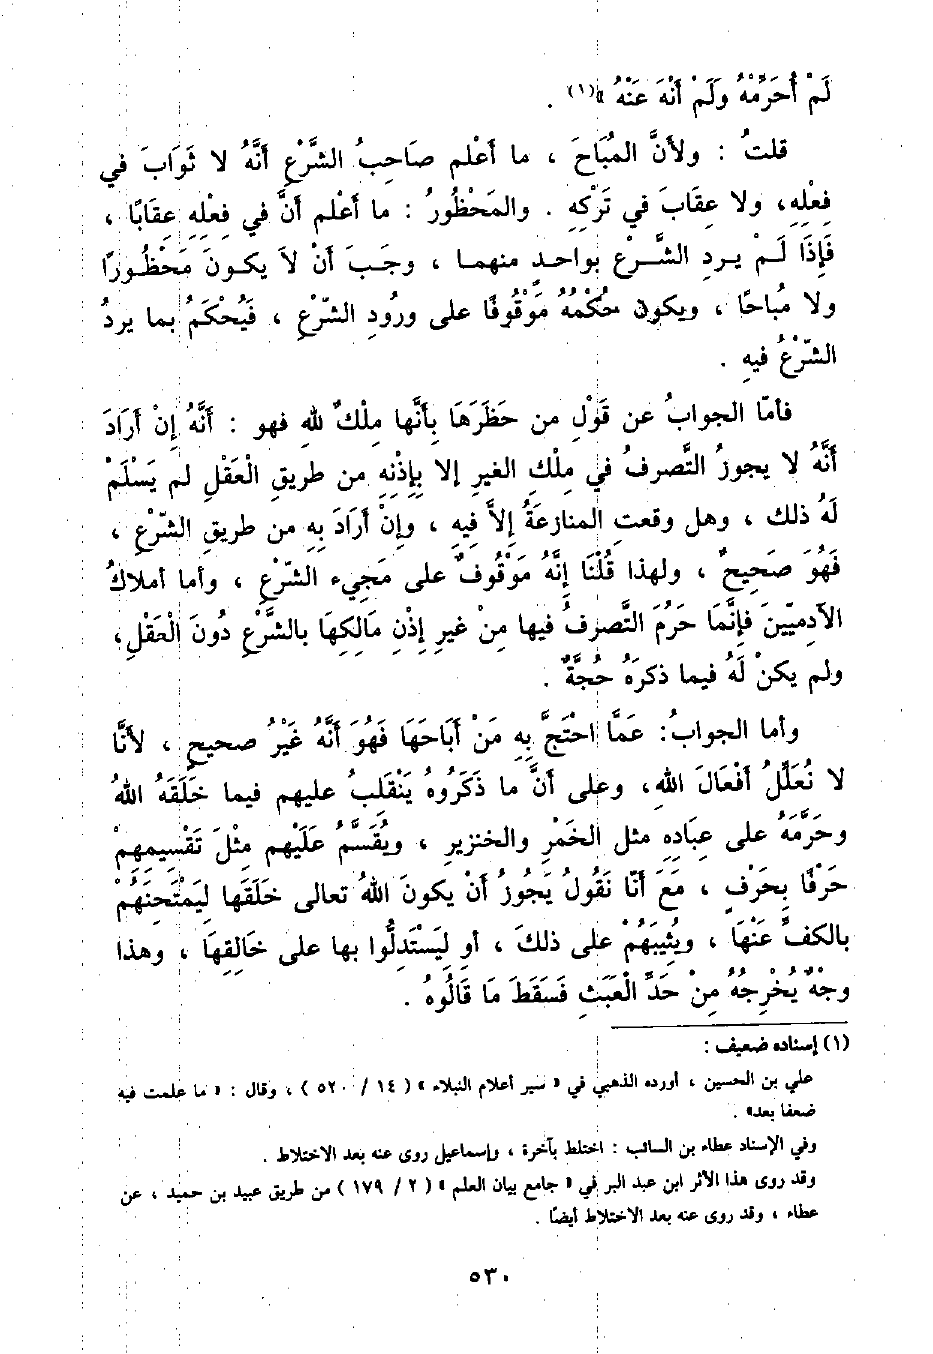 لَمْ أُحَرِّمْهُ وَلَمْ أَنْهَ عَنْهُ »(١) .
قلتُ : ولأنَّ المُبَاحَ ، ما أَعْلم صَاحِبُ الشَّرْعِ أنَّهُ لا ثَوَابَ في
فِعْلِهِ، ولا عِقَابَ في تَرْكِهِ . والمَحْظُورُ : ما أَعْلم أنَّ في فِعْلِهِ عِقَابًا ،
فَإِذَا لَـمْ يـردِ الشَّـرْع بواحـدٍ منهمـا ، وجَـبَ أنْ لاَ يكـونَ مَحْظُـورًا
ولا مُباحًا ، ويكون حُكْمُهُ مَوْقُوفًا على ورُودِ الشّرْعِ ، فَيُحْكَمُ بما يردُ
الشّرْعُ فيهِ .
فأمّا الجوابُ عن قَوْلِ من حَظَرَهَا بأنَّها مِلْكٌ للهِ فهو : أَنَّهُ إِنْ أَرَادَ
أَنَّهُ لا يجوزُ التَّصرفُ في مِلْكِ الغيرِ إلا بِإِذْنِهِ من طريقِ الْعَقْلِ لم يَسْلَمْ
لَهُ ذلك ، وهل وقعتِ المنازعَةُ إلاَّ فِيهِ ، وإنْ أَرَادَ بِهِ من طريقِ الشّرْعِ ،
فَهُوَ صَحِيحٌ ، ولهذا قُلْنَا إِنَّهُ مَوْقُوفٌ على مَجِيء الشّرْعِ ، وأما أملاكُ
الآدميّينَ فإِنَّمَا حَرُمَ التَّصرفُ فيها مِنْ غيرِ إذْنِ مَالِكِهَا بالشَّرْعِ دُونَ الْعَقْلِ،
ولم يكنْ لَهُ فيما ذكرَهُ حُجَّةٌ .
وأما الجوابُ: عَمَّا احْتَجَّ بِهِ مَنْ أَبَاحَهَا فَهُوَ أَنَّهُ غَيْرُ صحيحٍ ، لأنَّا
لا نُعَلِّلُ أَفْعَالَ اللهِ، وعلى أنَّ ما ذَكَرُوهُ يَنْقَلبُ عليهم فيما خَلَقَهُ اللهُ
وحَرَّمَهُ على عِبَادِهِ مثل الخَمْرِ والخنزيرِ ، ويُقَسَّمُ عَلَيْهم مثْلَ تَقْسِيمِهِمْ
حَرْفًا بِحَرْفٍ ، مَعَ أنّا نَقُولُ يَجُوزُ أنْ يكونَ اللهُ تعالى خَلَقَها لِيَمْتَحِنَهُمْ
بالكفِّ عَنْهَا ، ويُثِيبَهُمْ على ذلكَ ، أو لِيَسْتَدِلُّوا بها على خَالِقِهَا ، وهذا
وجْهٌ يُخْرِجُهُ مِنْ حَدِّ الْعَبَثِ فَسَقَطَ مَا قَالُوهُ .
(١) إسناده ضعيف :
علي بن الحسين ، أورده الذهبي في « سير أعلام النبلاء » ( ١٤ / ٥٢٠ ) ، وقال : « ما علمت فيه
ضعفا بعد» .
وفي الإسناد عطاء بن السائب : اختلط بآخرة ، وإسماعيل روى عنه بعد الاختلاط .
وقد روى هذا الأثر ابن عبد البر في « جامع بيان العلم » ( ٢ / ١٧٩ ) من طريق عبيد بن حميد ، عن
عطاء ، وقد روى عنه بعد الاختلاط أيضًا .
٥٣٠